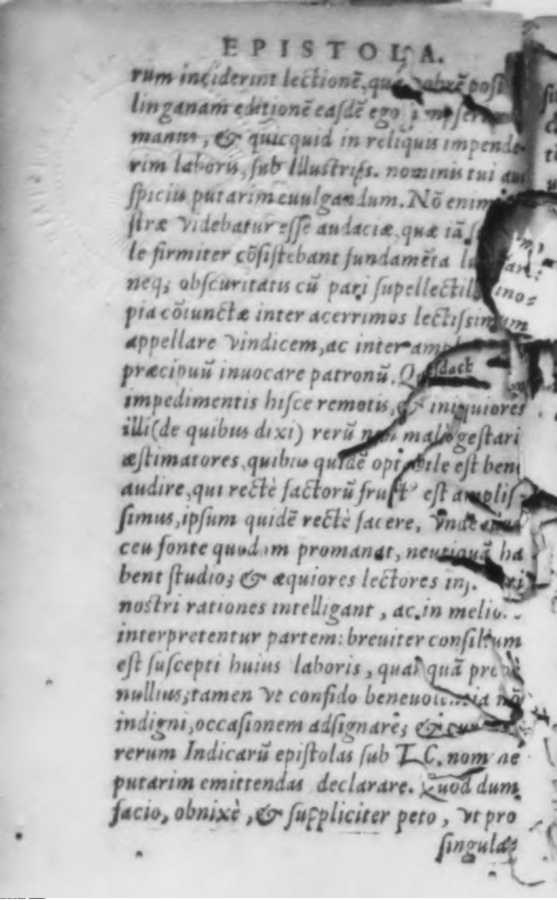 EPISTOLA.
rum inciderint lectionē, post
linganam editionē easdē ego
manus, & quicquid in reliquis impende-
rim laboris, sub Illustriss. nominis tui au
spicijs putarim euulgandum. Nō enim
stræ videbatur esse audaciæ, quæ iā
le firmiter cōsistebant fundamēta
neq; obscuritatis cū pari supellectilis
pia cōiunctæ inter acerrimos lectissimum
appellare vindicem, ac inter
præcipuū inuocare patronū.
impedimentis hisce remotis, & iniquiores
illi (de quibus dixi) rerū malè gestarū
æstimatores, quibus quidē optabile est bene
audire, qui rectè factorū fruct est amplis-
simus, ipsum quidē rectè facere, vnde
ceu fonte quodam promanat, neutiquā ha
bent studio; & æquiores lectores
nostri rationes intelligant, ac in
interpretentur partem: breuiter consilium
est suscepti huius laboris, quanquā
nullius, tamen vt confido beneuolentia nō
indigni, occasionem adsignare; &
rerum Indicarū epistolas sub T. C. nomine
putarim emittendas declarare. Quod dum
facio, obnixè, & suppliciter peto, vt pro
singula